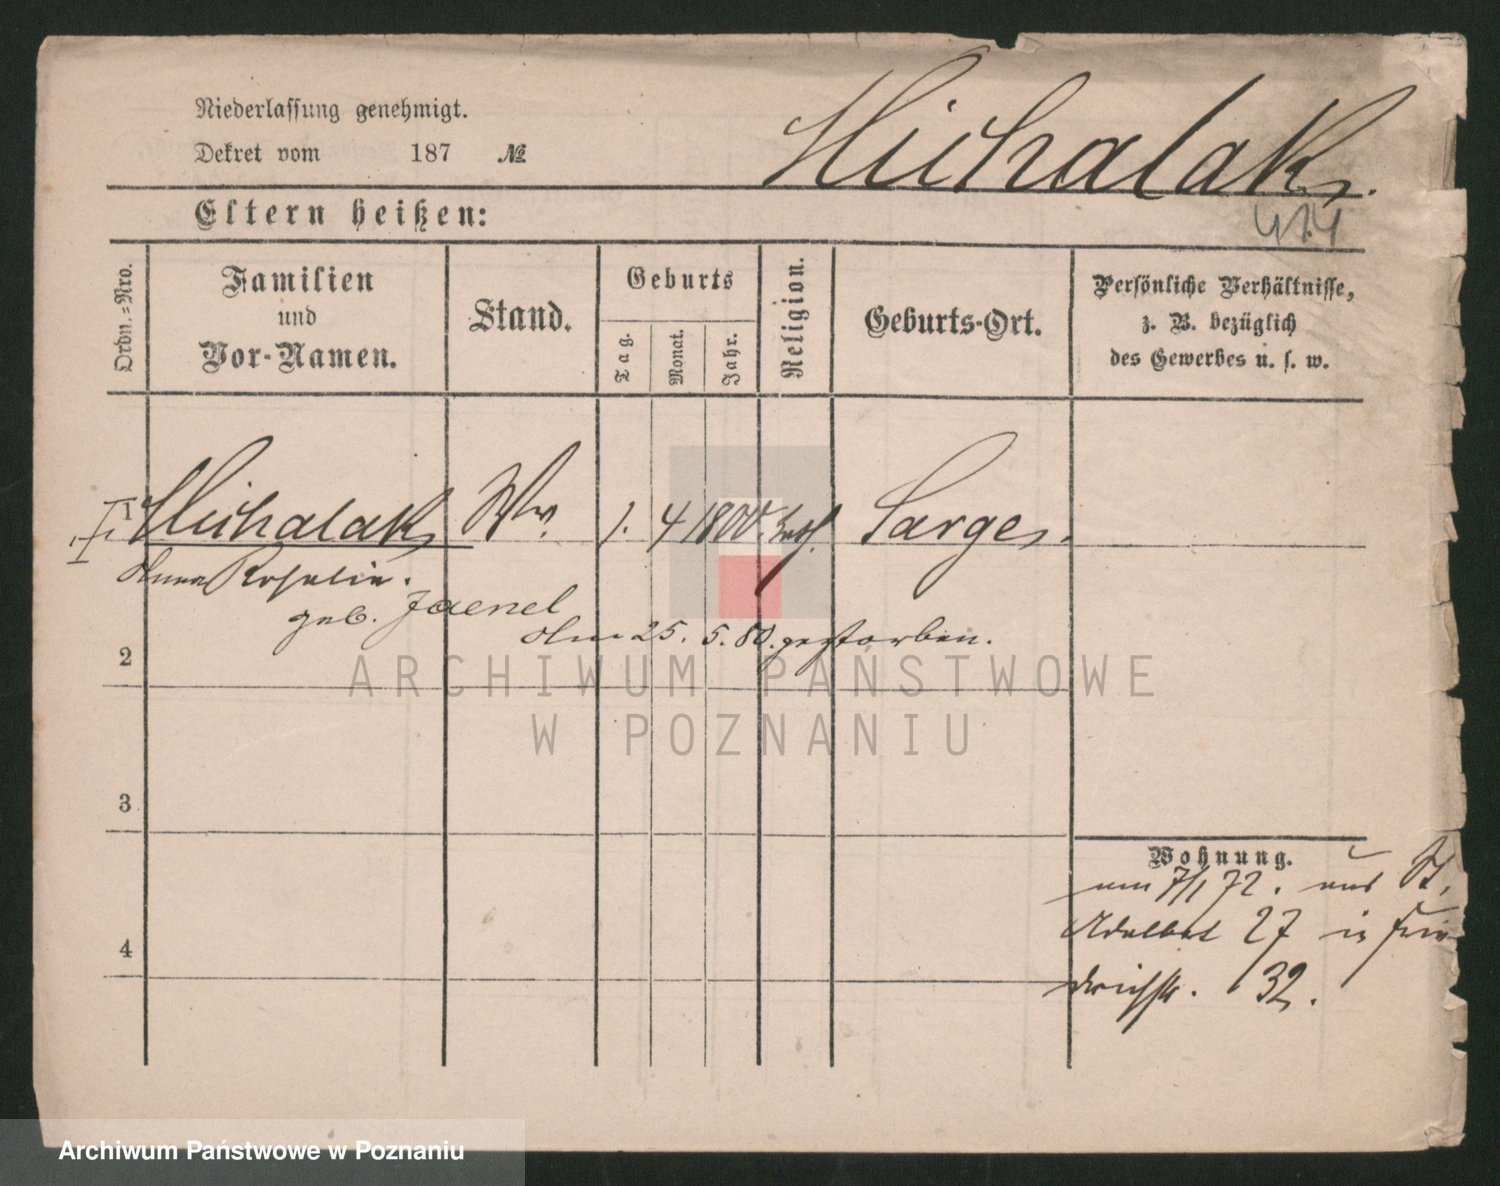 Niederlassung genehmigt.
Dekret vom 187 №
Michalak.
414
Eltern heißen:
Ordn.=Nro.
Familien
und
Vor-Namen.
Stand.
Geburts
Tag.
Monat.
Jahr.
Religion.
Geburts-Ort.
Persönliche Verhältnisse,
z. B. bezüglich
des Gewerbes u. s. w.
1
Michalak Ww. 1. 4 1800. kath. Sarge
Anna Rosalie.
geb. Jaenel
Am 25. 5. 80. gestorben.
2
3
4
Wohnung.
am 7/1 72. aus St.
Adalbert 27 in Frie
drichstr. 32.
ARCHIWUM PAŃSTWOWE
W POZNANIU
Archiwum Państwowe w Poznaniu